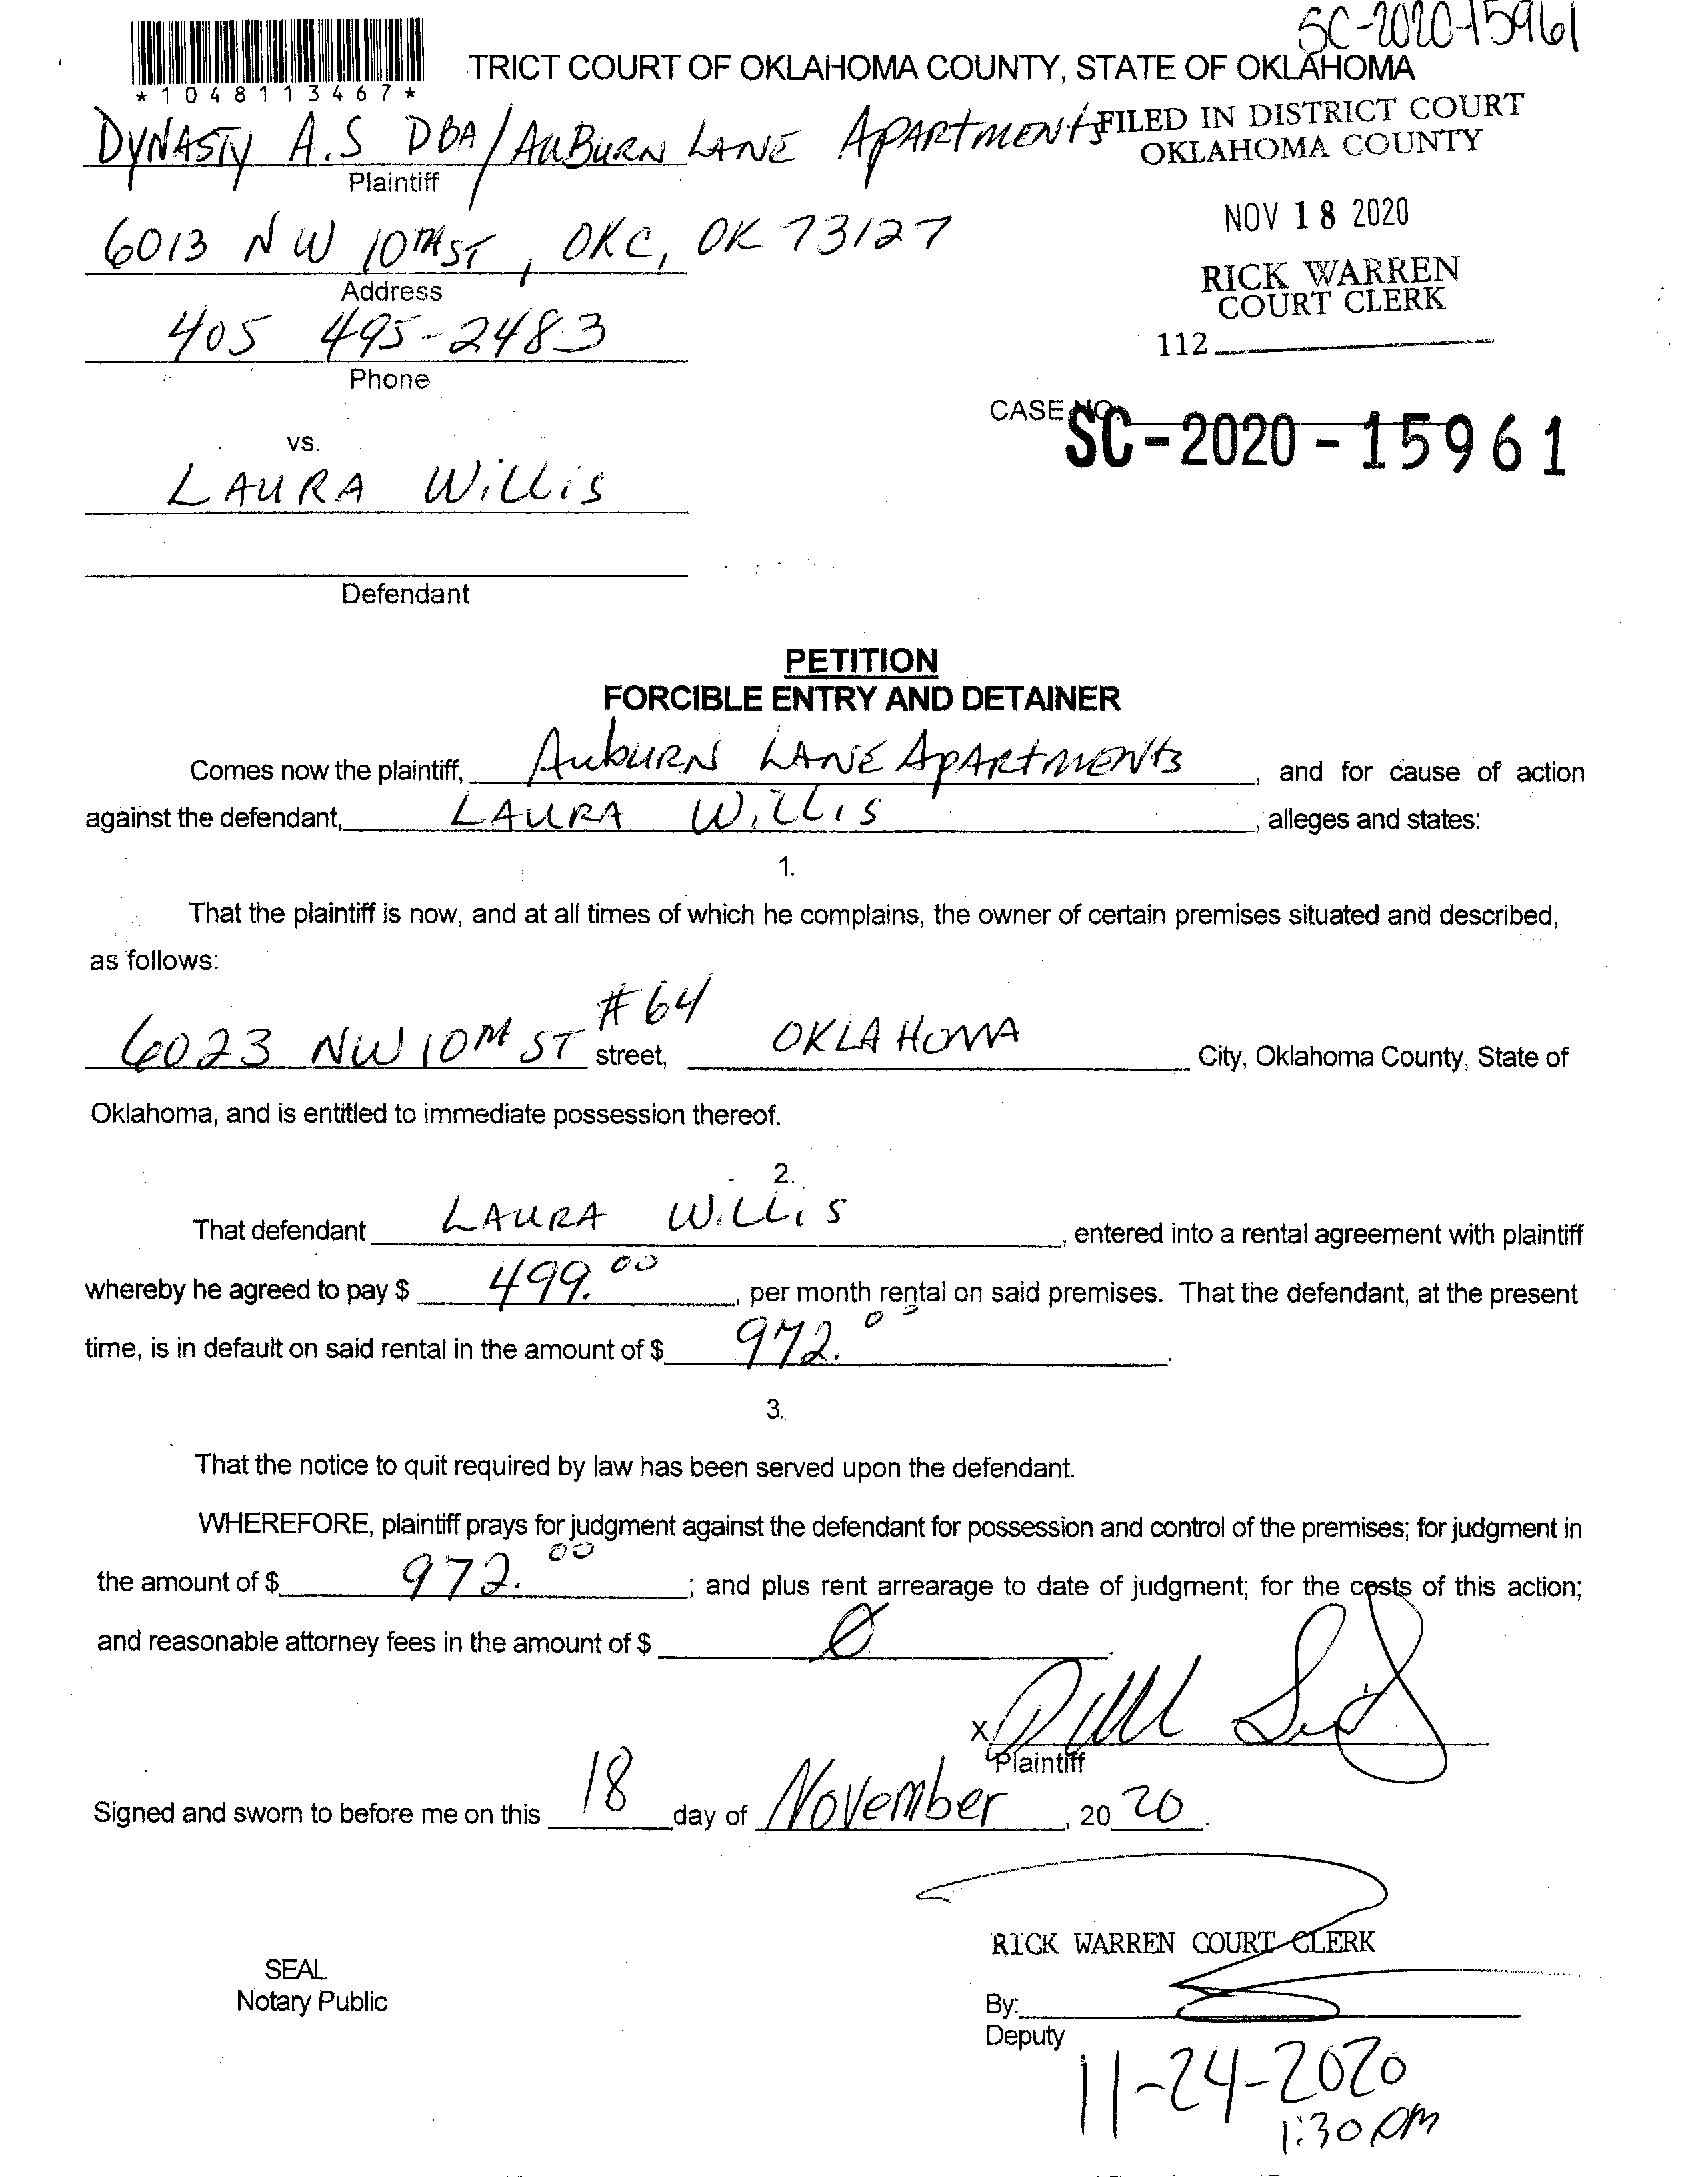 SC-2020-15961
TRICT COURT OF OKLAHOMA COUNTY, STATE OF OKLAHOMA
*1048113467*
DYNASTY A.S DBA/AUBURN LANE APARTMENTS
Plaintiff
FILED IN DISTRICT COURT
OKLAHOMA COUNTY
NOV 18 2020
6013 NW 10TH ST, OKC, OK 73127
Address
RICK WARREN
COURT CLERK
405 495-2483
112
Phone
CASE NO.
SC-2020-15961
vs.
LAURA WILLIS
Defendant
PETITION
FORCIBLE ENTRY AND DETAINER
Comes now the plaintiff, Auburn LANE APARTMENTS, and for cause of action
against the defendant, LAURA WILLIS, alleges and states:
1.
That the plaintiff is now, and at all times of which he complains, the owner of certain premises situated and described,
as follows:
6023 NW 10TH ST #64 street, OKLAHOMA City, Oklahoma County, State of
Oklahoma, and is entitled to immediate possession thereof.
2.
That defendant LAURA WILLIS, entered into a rental agreement with plaintiff
whereby he agreed to pay $ 499.00, per month rental on said premises. That the defendant, at the present
time, is in default on said rental in the amount of $ 972.00.
3.
That the notice to quit required by law has been served upon the defendant.
WHEREFORE, plaintiff prays for judgment against the defendant for possession and control of the premises; for judgment in
the amount of $ 972.00; and plus rent arrearage to date of judgment; for the costs of this action;
and reasonable attorney fees in the amount of $ 0.
X
Plaintiff
Signed and sworn to before me on this 18 day of November, 2020.
RICK WARREN COURT CLERK
SEAL
Notary Public
By:
Deputy
11-24-2020
1:30 PM